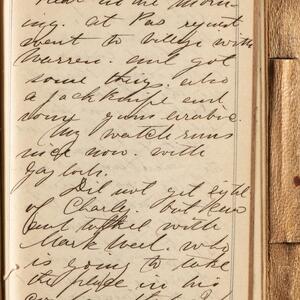 in the morn-
ing. at Pas request
went to village with
Warren. and got
some things. also
a Jack knife and
some gum arabic.
My watch runs
nice now. with
Did not get sight
of Charley. but
and talked with
Mark who
is going to take
the place in his